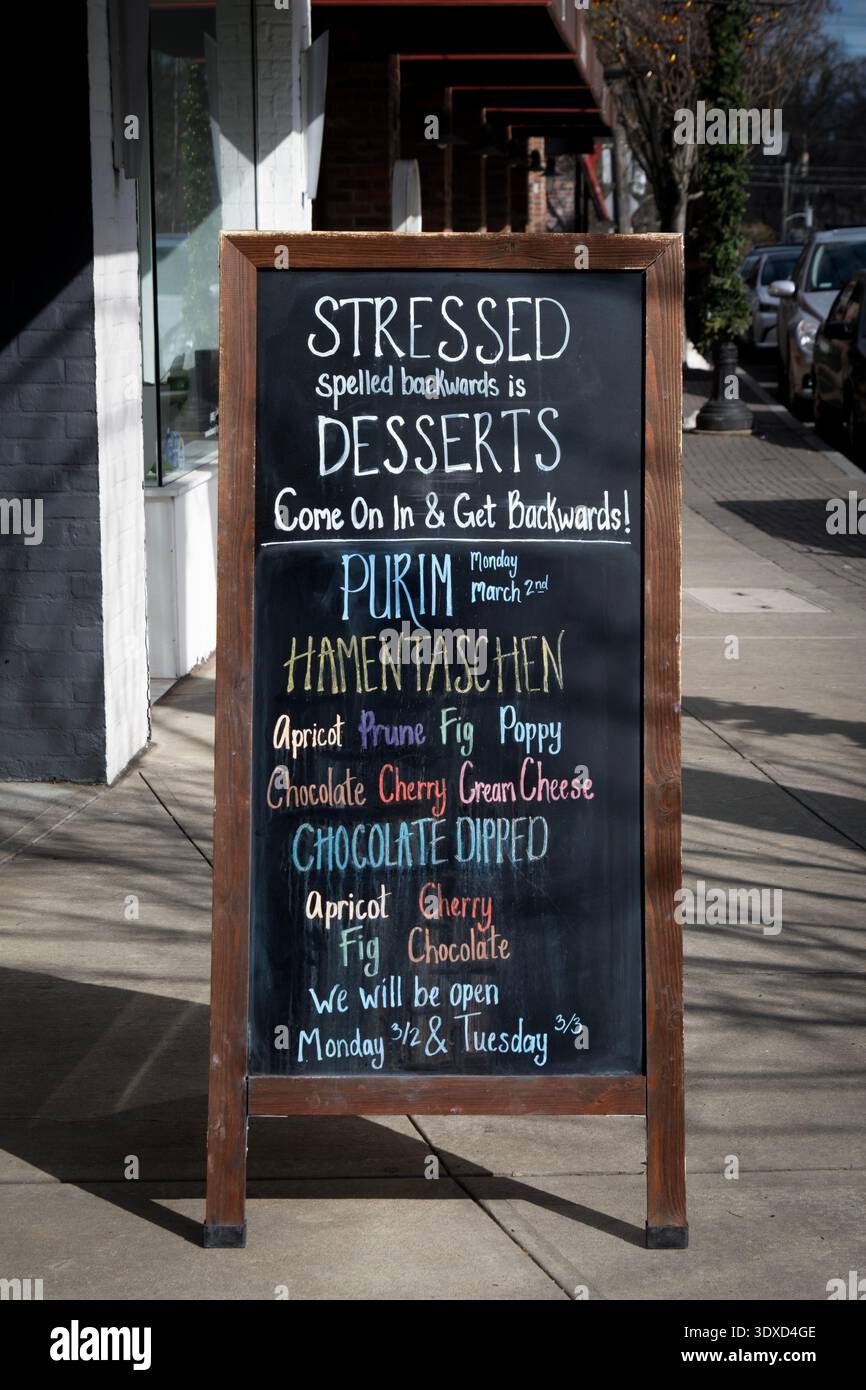 STRESSED
spelled backwards is
DESSERTS
Come On In & Get Backwards!
PURIM Monday March 2nd
HAMENTASCHEN
Apricot Prune Fig Poppy
Chocolate Cherry Cream Cheese
CHOCOLATE DIPPED
Apricot Cherry
Fig Chocolate
We will be open
Monday 3/2 & Tuesday 3/3
alamy
Image ID: 3DXD4GE
www.alamy.com